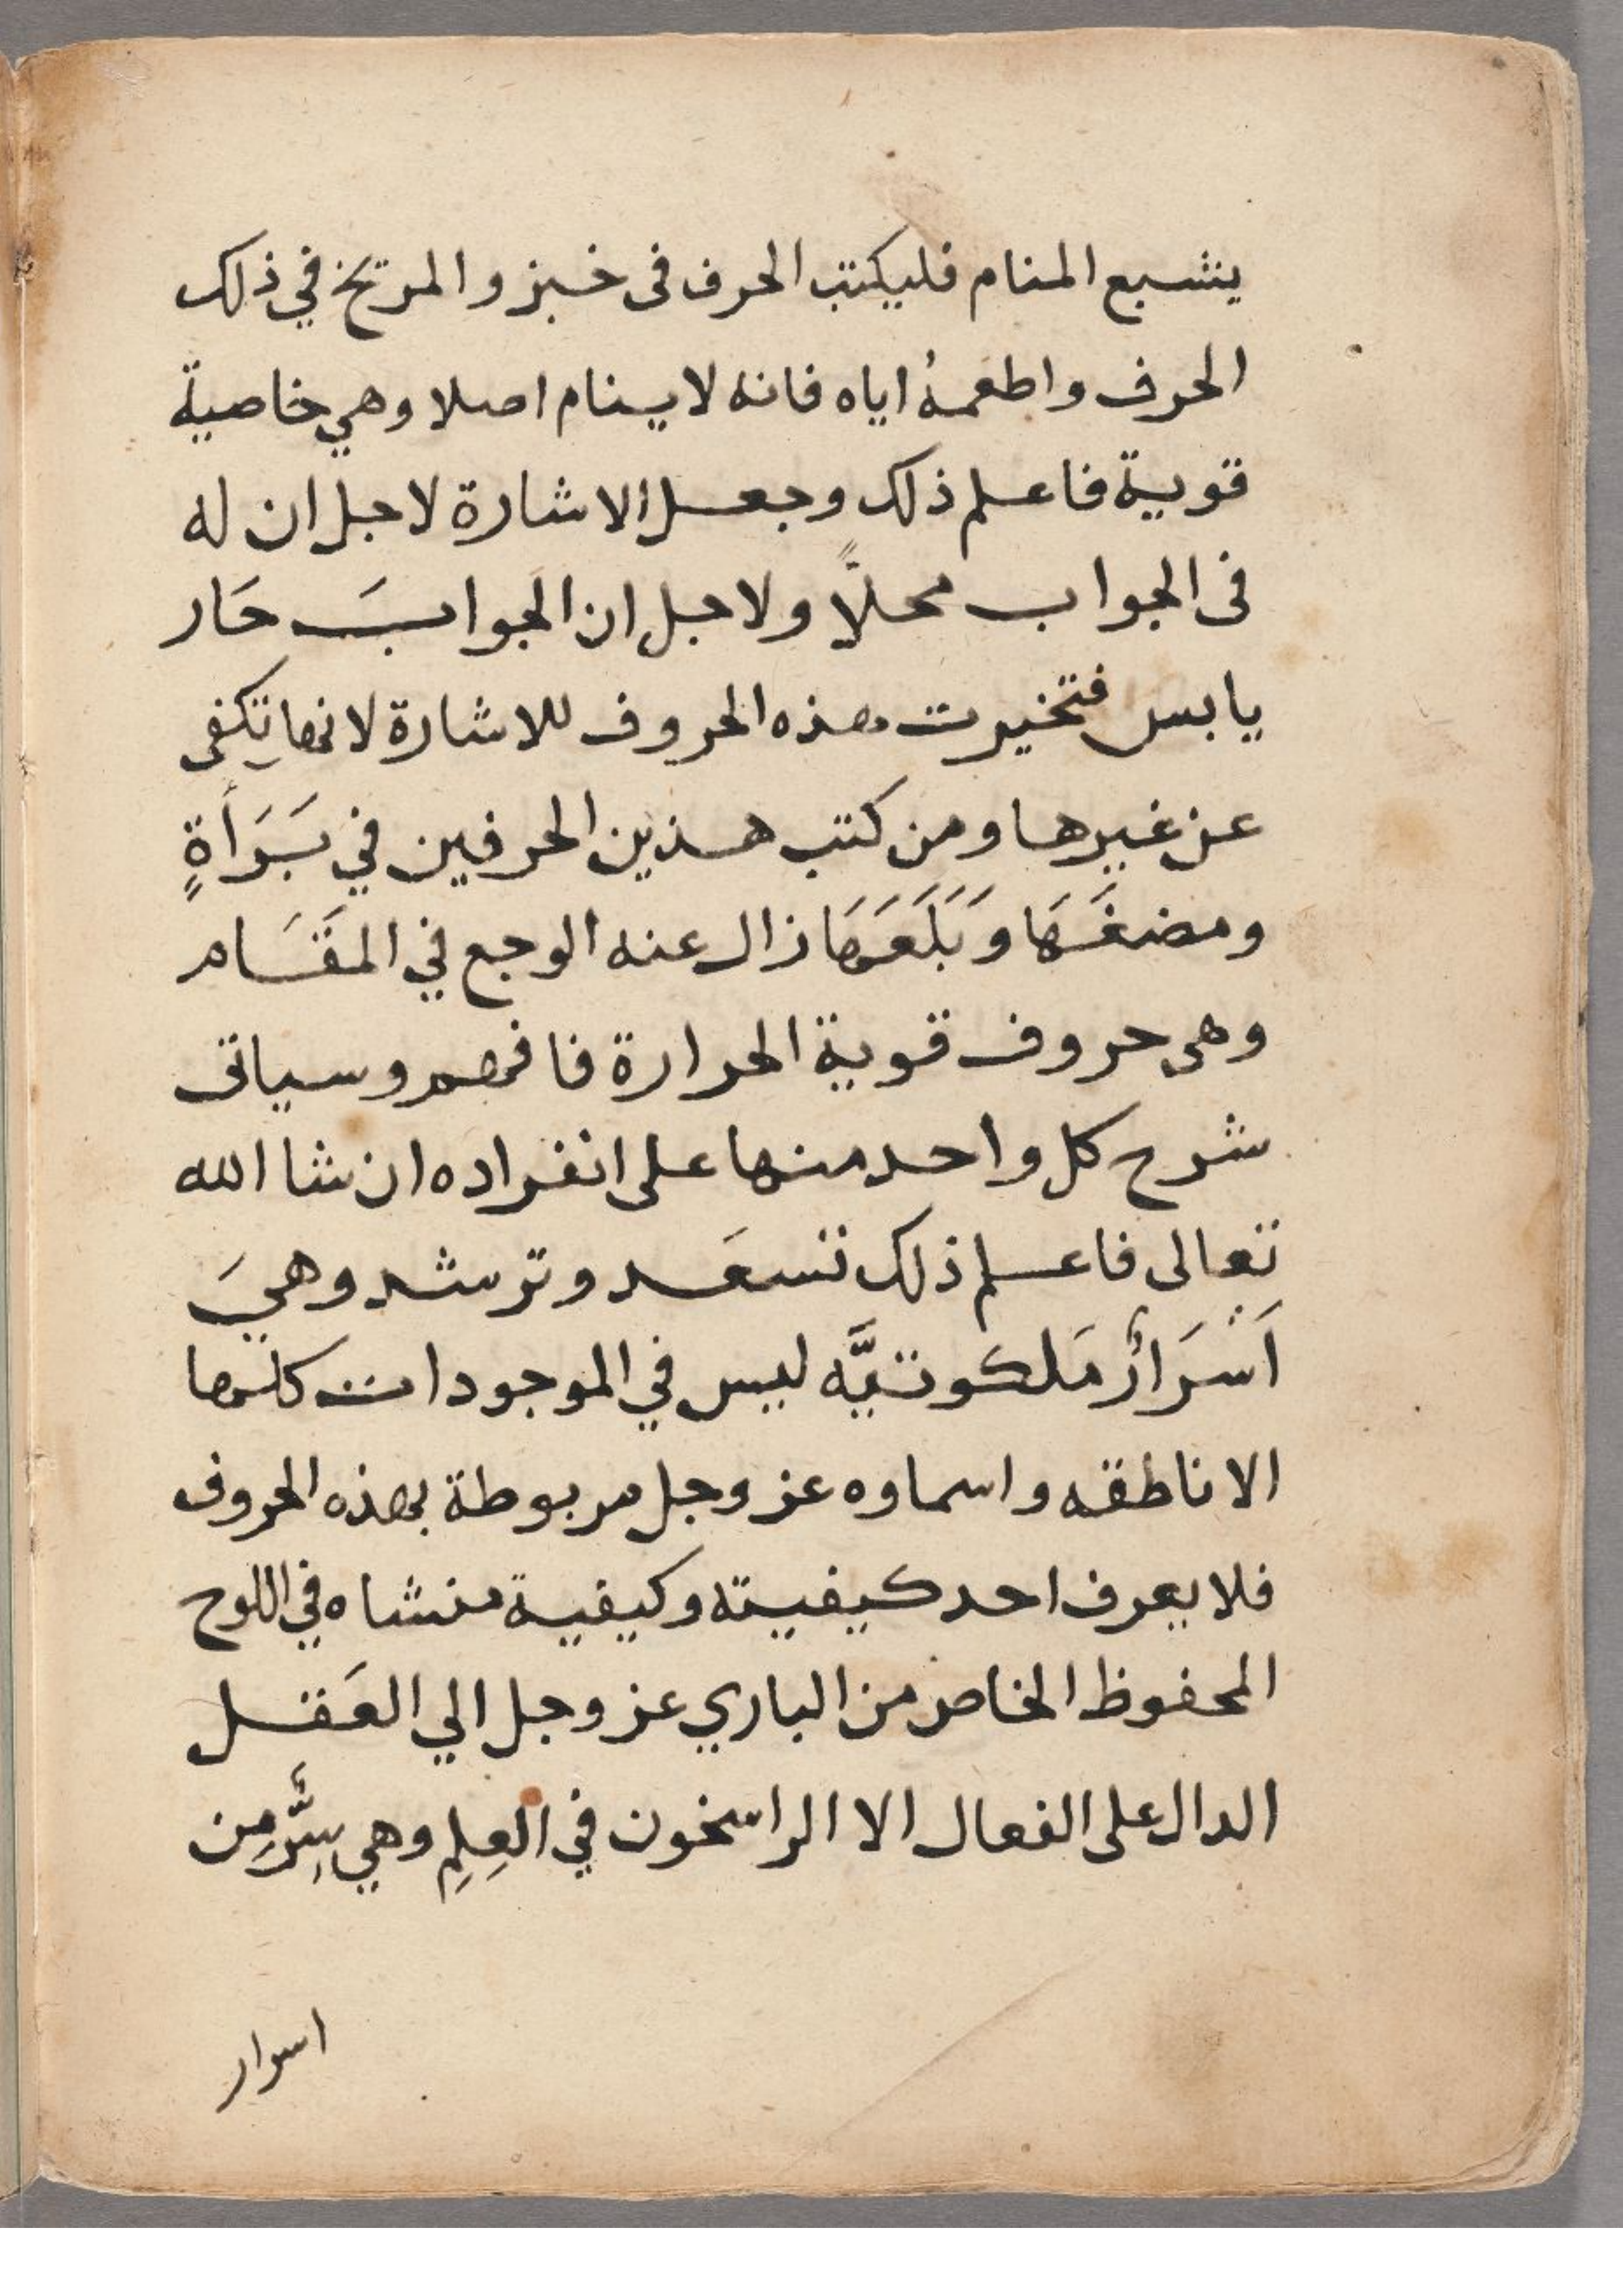 ينشبع المنام فليكتب الحرف فى خبز والمريخ في ذلك
الحرف واطعمهُ اياه فانه لا ينام اصلا وهي خاصية
قوية فاعلم ذلك وجعل الاشارة لاجل ان له
فى الجواب محلاً ولاجل ان الجوابَ حَار
يابس فتخيرت هذه الحروف للاشارة لانها تكفى
عن غيرها ومن كتب هذين الحرفين في بَرَأَةٍ
ومضغَهَا وَبَلَعَهَا زال عنه الوجع في المقَام
وهى حروف قوية الحرارة فافهم وسياتى
شرح كل واحد منها على انفراده ان شا الله
تعالى فاعلم ذلك تسعَد وترشد وهيَ
اَسْرَارٌ مَلكوتيَّه ليس في الموجودات كلها
الا ناطقه واسماوه عز وجل مربوطة بهذه الحروف
فلا يعرف احد كيفيته وكيفية منشاه في اللوح
المحفوظ الخاص من الباري عز وجل الي العَقل
الدال على الفعال الا الراسخون في العِلمِ وهي سِرٌّ مِن
اسرار